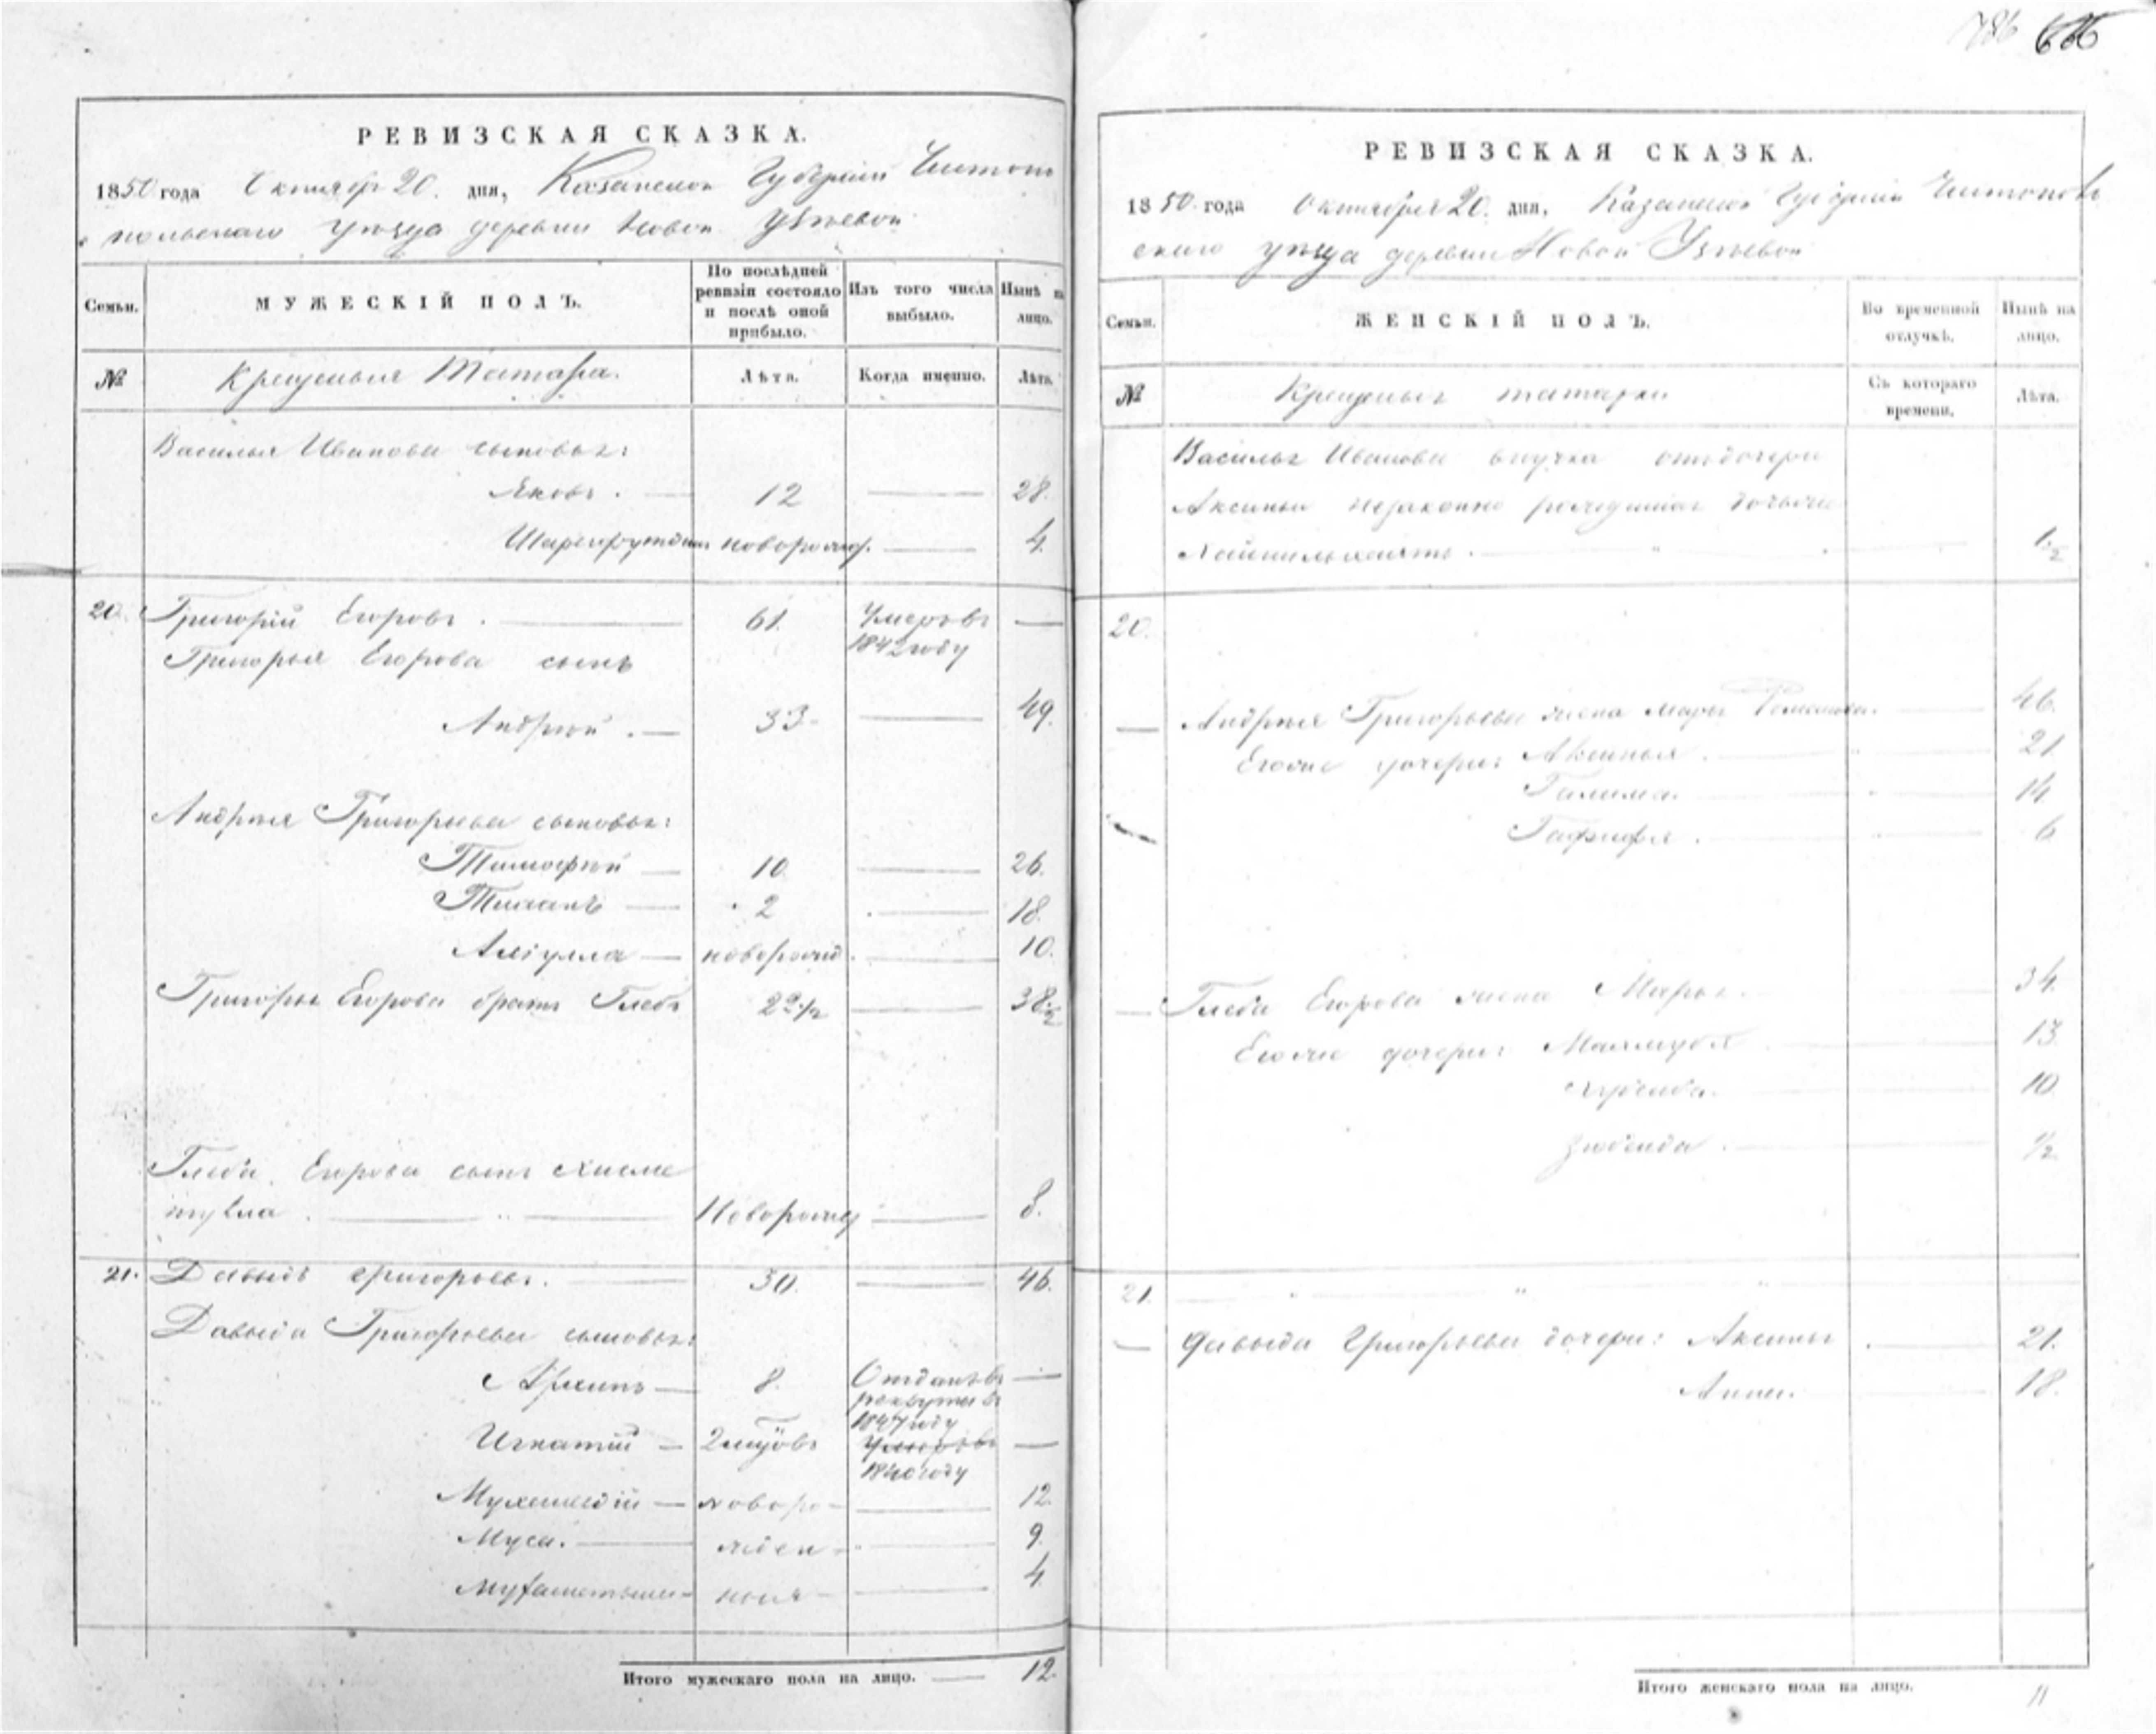 666
РЕВИЗСКАЯ СКАЗКА.
1850 года Октября 20. дня, Казанской Губернии Чисто
польскаго уѣзда деревни Новой Узѣевой
Семьи.
МУЖЕСКІЙ ПОЛЪ.
По послѣдней ревизіи состояло и послѣ оной прибыло.
Изъ того числа выбыло.
Нынѣ на лицо.
№
Крещеныя Татара.
Лѣта.
Когда именно.
Лѣта.
Василья Иванова сыновья:
Яковъ. 12 28.
новорожд. 4.
20. Григорій Егоровъ. 61. Умеръ въ 1842 году
Григорья Егорова сынъ
Андрей. 33 49.
Андрея Григорьева сыновья:
Тимофей 10 26.
2 18.
новорожд. 10.
Григорья Егорова братъ Глебъ 22 1/2 38 1/2
Глеба Егорова сынъ Хисме
тулла. Новорожд 8.
21. Давыдъ Григорьевъ. 30. 46.
Давыда Григорьева сыновья:
Архипъ 8. Отданъ въ рекруты въ 1847 году
Игнатій Умеръ въ 1840 году
новоро- 12.
Муса. жден- 9.
ныя 4.
Итого мужескаго пола на лицо. 12.
РЕВИЗСКАЯ СКАЗКА.
1850 года Октября 20. дня, Казанской Губерніи Чистополь
скаго уѣзда деревни Новой Узѣевой
Семьи.
ЖЕНСКІЙ ПОЛЪ.
Во временной отлучкѣ.
Нынѣ на лицо.
№
Крещеныя татарки
Съ котораго времени.
Лѣта.
Василья Иванова внучка отъ дочери
Аксиньи незаконно рожденная
1/2
20.
Андрея Григорьева жена Марья 46.
Егоже дочери: Аксинья. 21
Галима. 14
6
Глеба Егорова жена Марья. 34.
Егоже дочери: 13
10
Зюбейда. 1/2
21.
Давыда Григорьева дочери: Аксинья 21.
Анна. 18.
Итого женскаго пола на лицо. 11